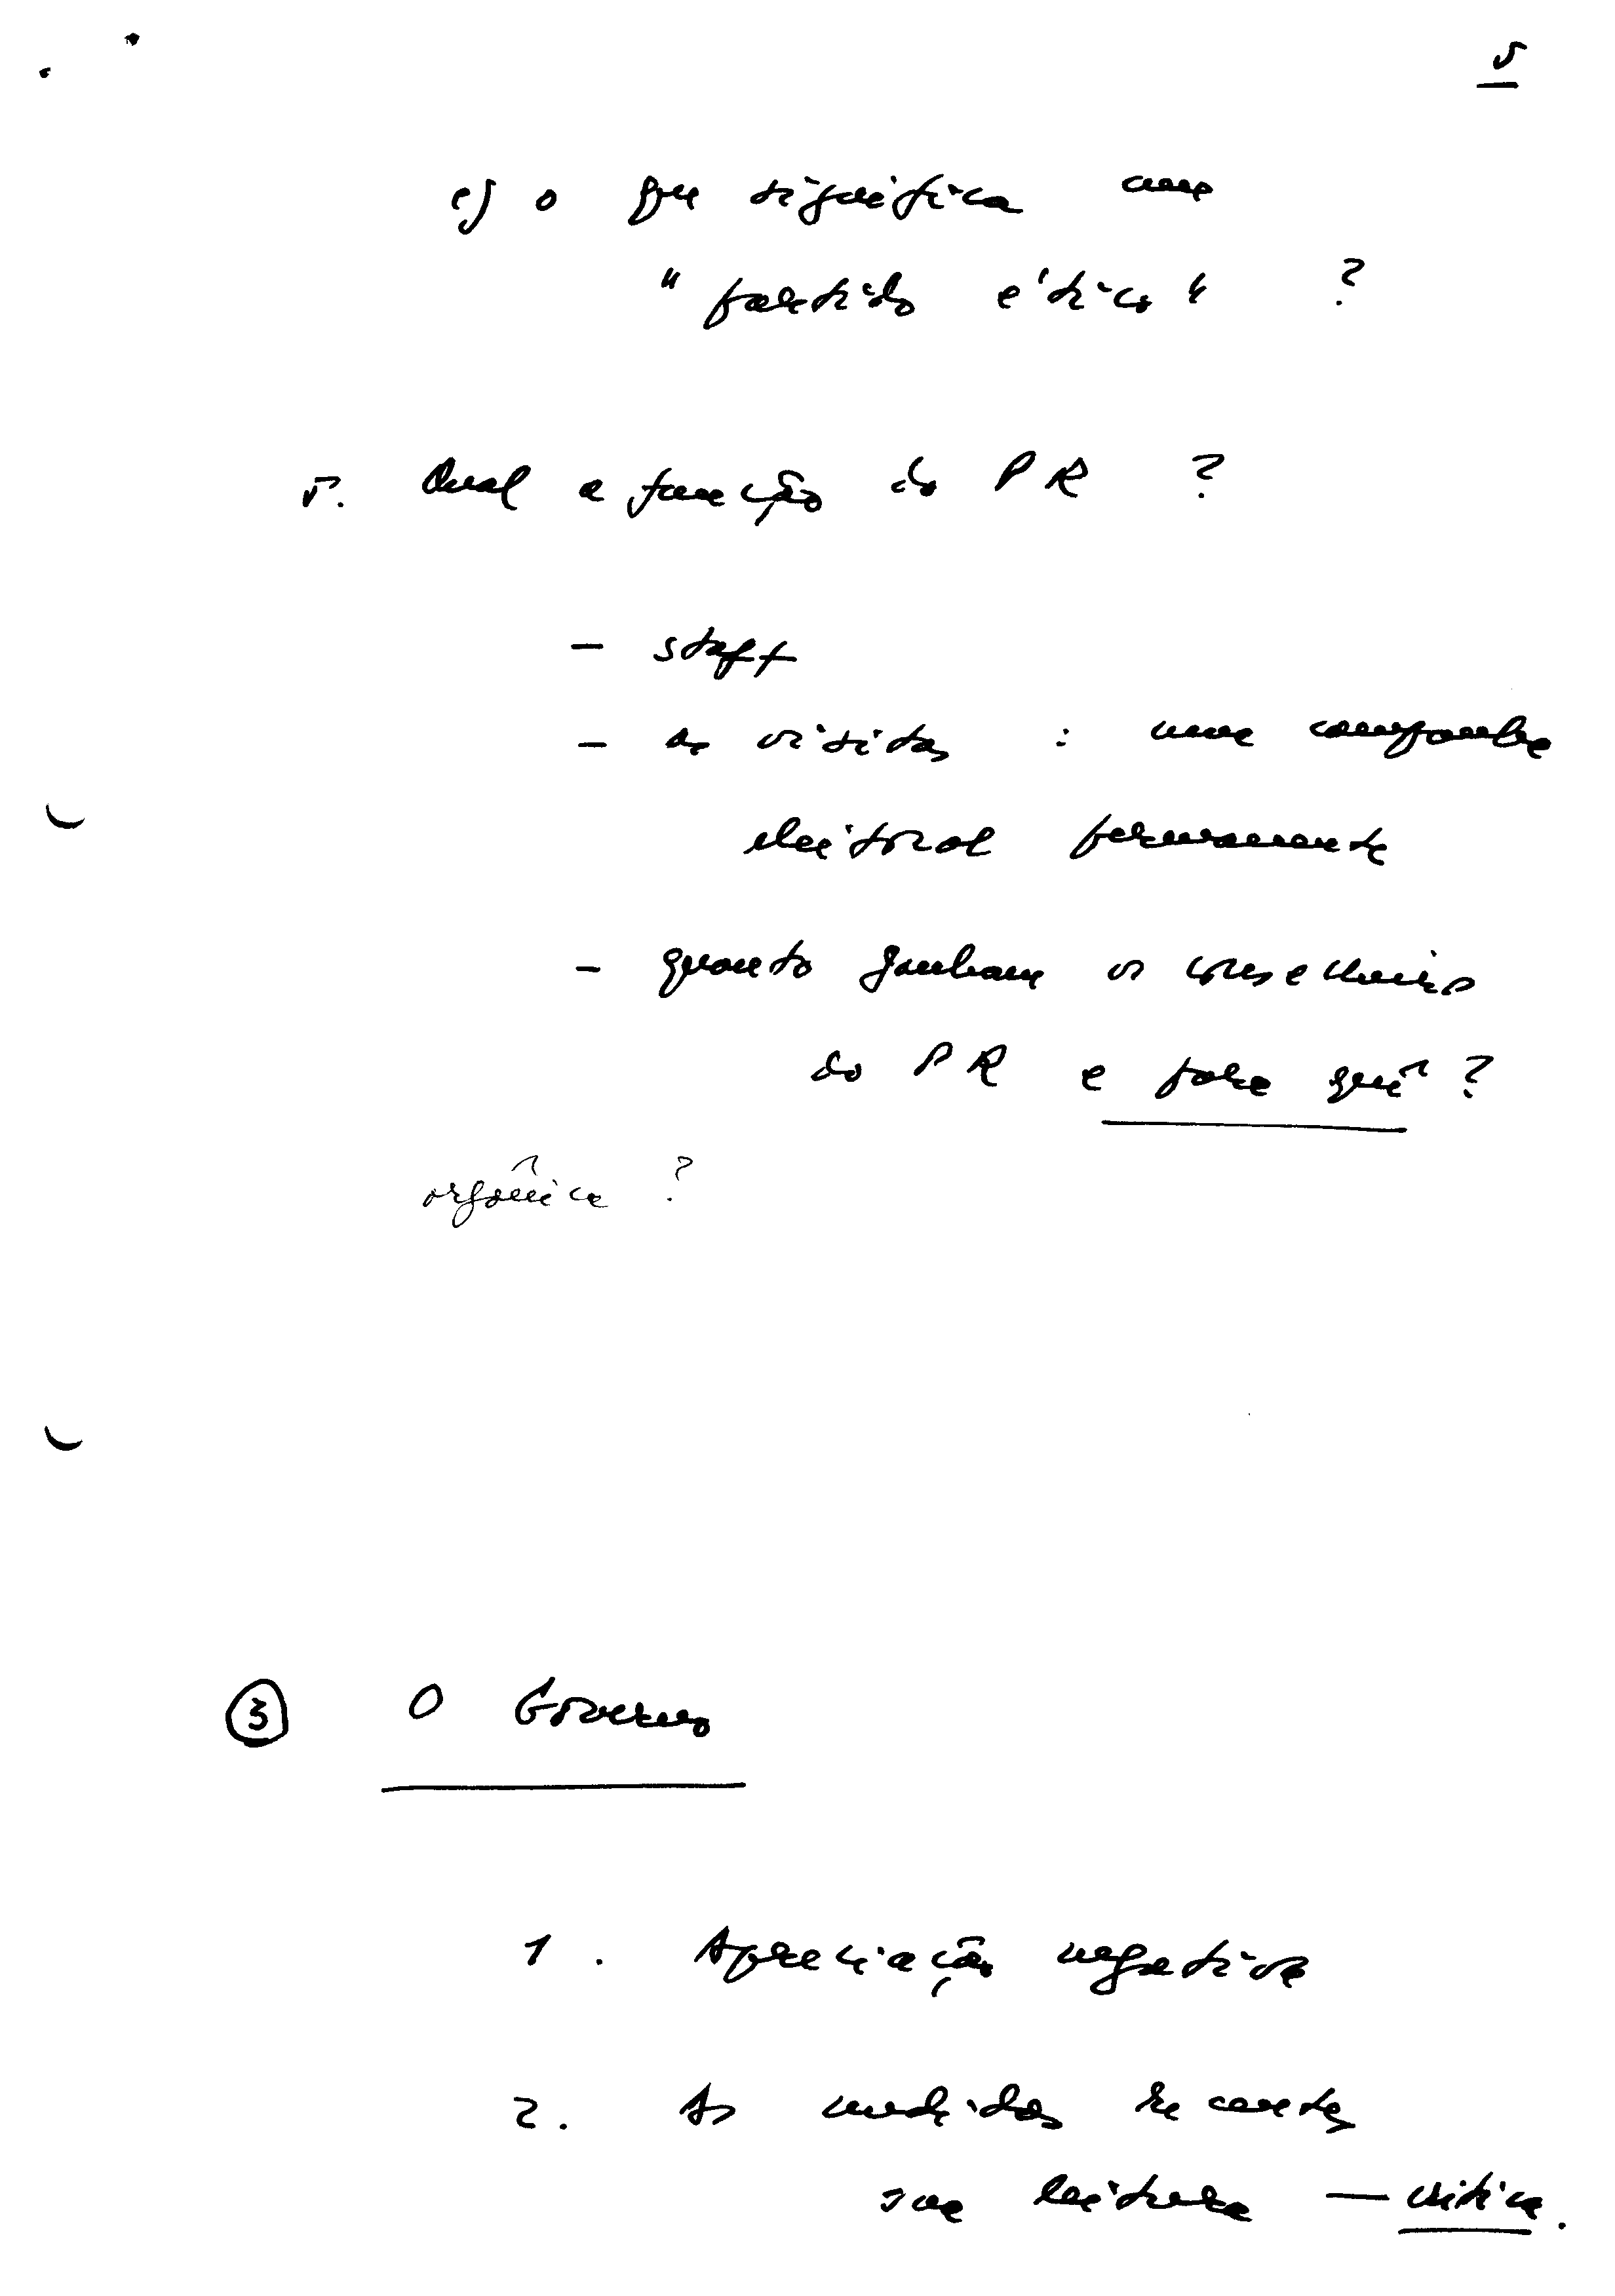 5
c) o que significa um
"partido ético" ?
5. Qual a função do PR ?
- staff
- as visitas : uma campanha
eleitoral permanente
- quanto ganham os conselheiros
do PR e para quê ?
orgânica ?
3 O Governo
1. Apreciação negativa
2. As medidas recentes
sua leitura — crítica.